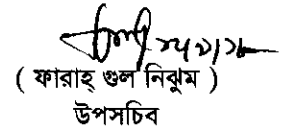 ( ফারাহ্ গুল নিঝুম )
উপসচিব